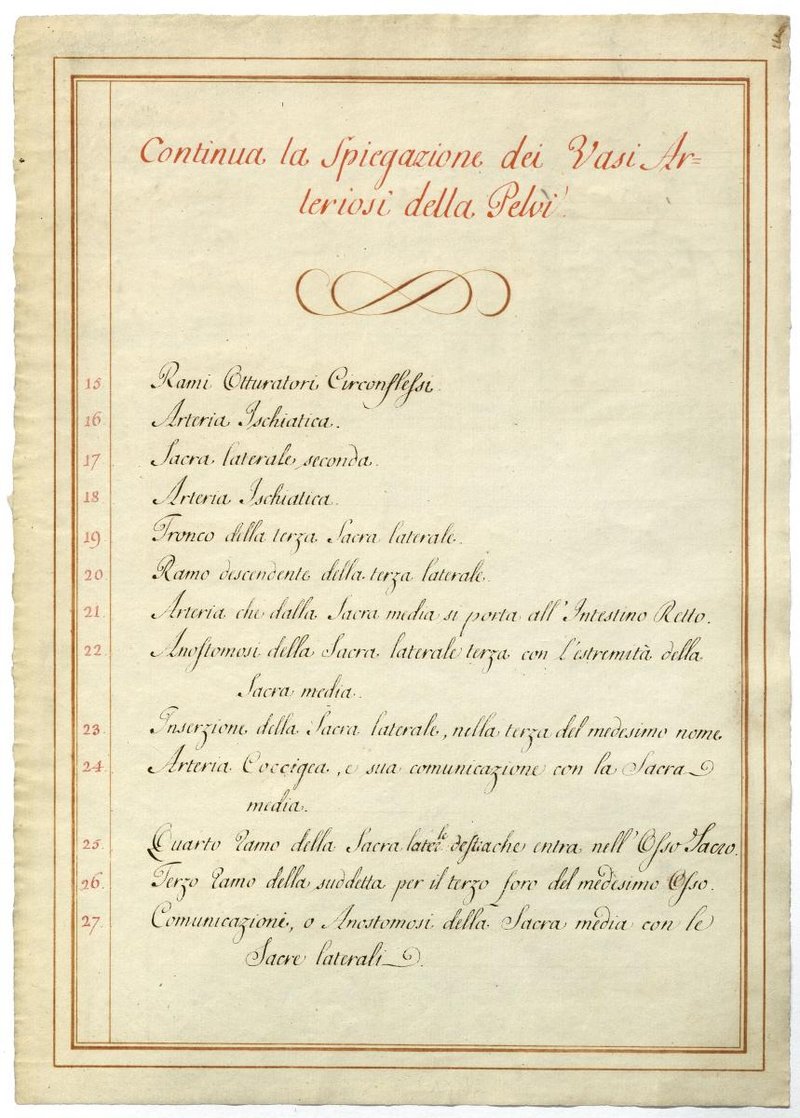 Continua la Spiegazione dei Vasi Ar=
teriosi della Pelvi
15 Rami Otturatori Circonflessi.
16 Arteria Ischiatica.
17 Sacra laterale seconda.
18 Arteria Ischiatica.
19 Tronco della terza Sacra laterale.
20 Ramo descendente della terza laterale.
21. Arteria che dalla Sacra media si porta all'Intestino Retto.
22 Anostomosi della Sacra laterale terza con l'estremità della
Sacra media.
23. Inserzione della Sacra laterale, nella terza del medesimo nome
24. Arteria Coccigea, e sua comunicazione con la Sacra
media.
25. Quarto ramo della Sacra che entra nell'Osso Sacro.
26. Terzo ramo della suddetta per il terzo foro del medesimo Osso.
27. Comunicazioni, o Anostomosi della Sacra media con le
Sacre laterali.